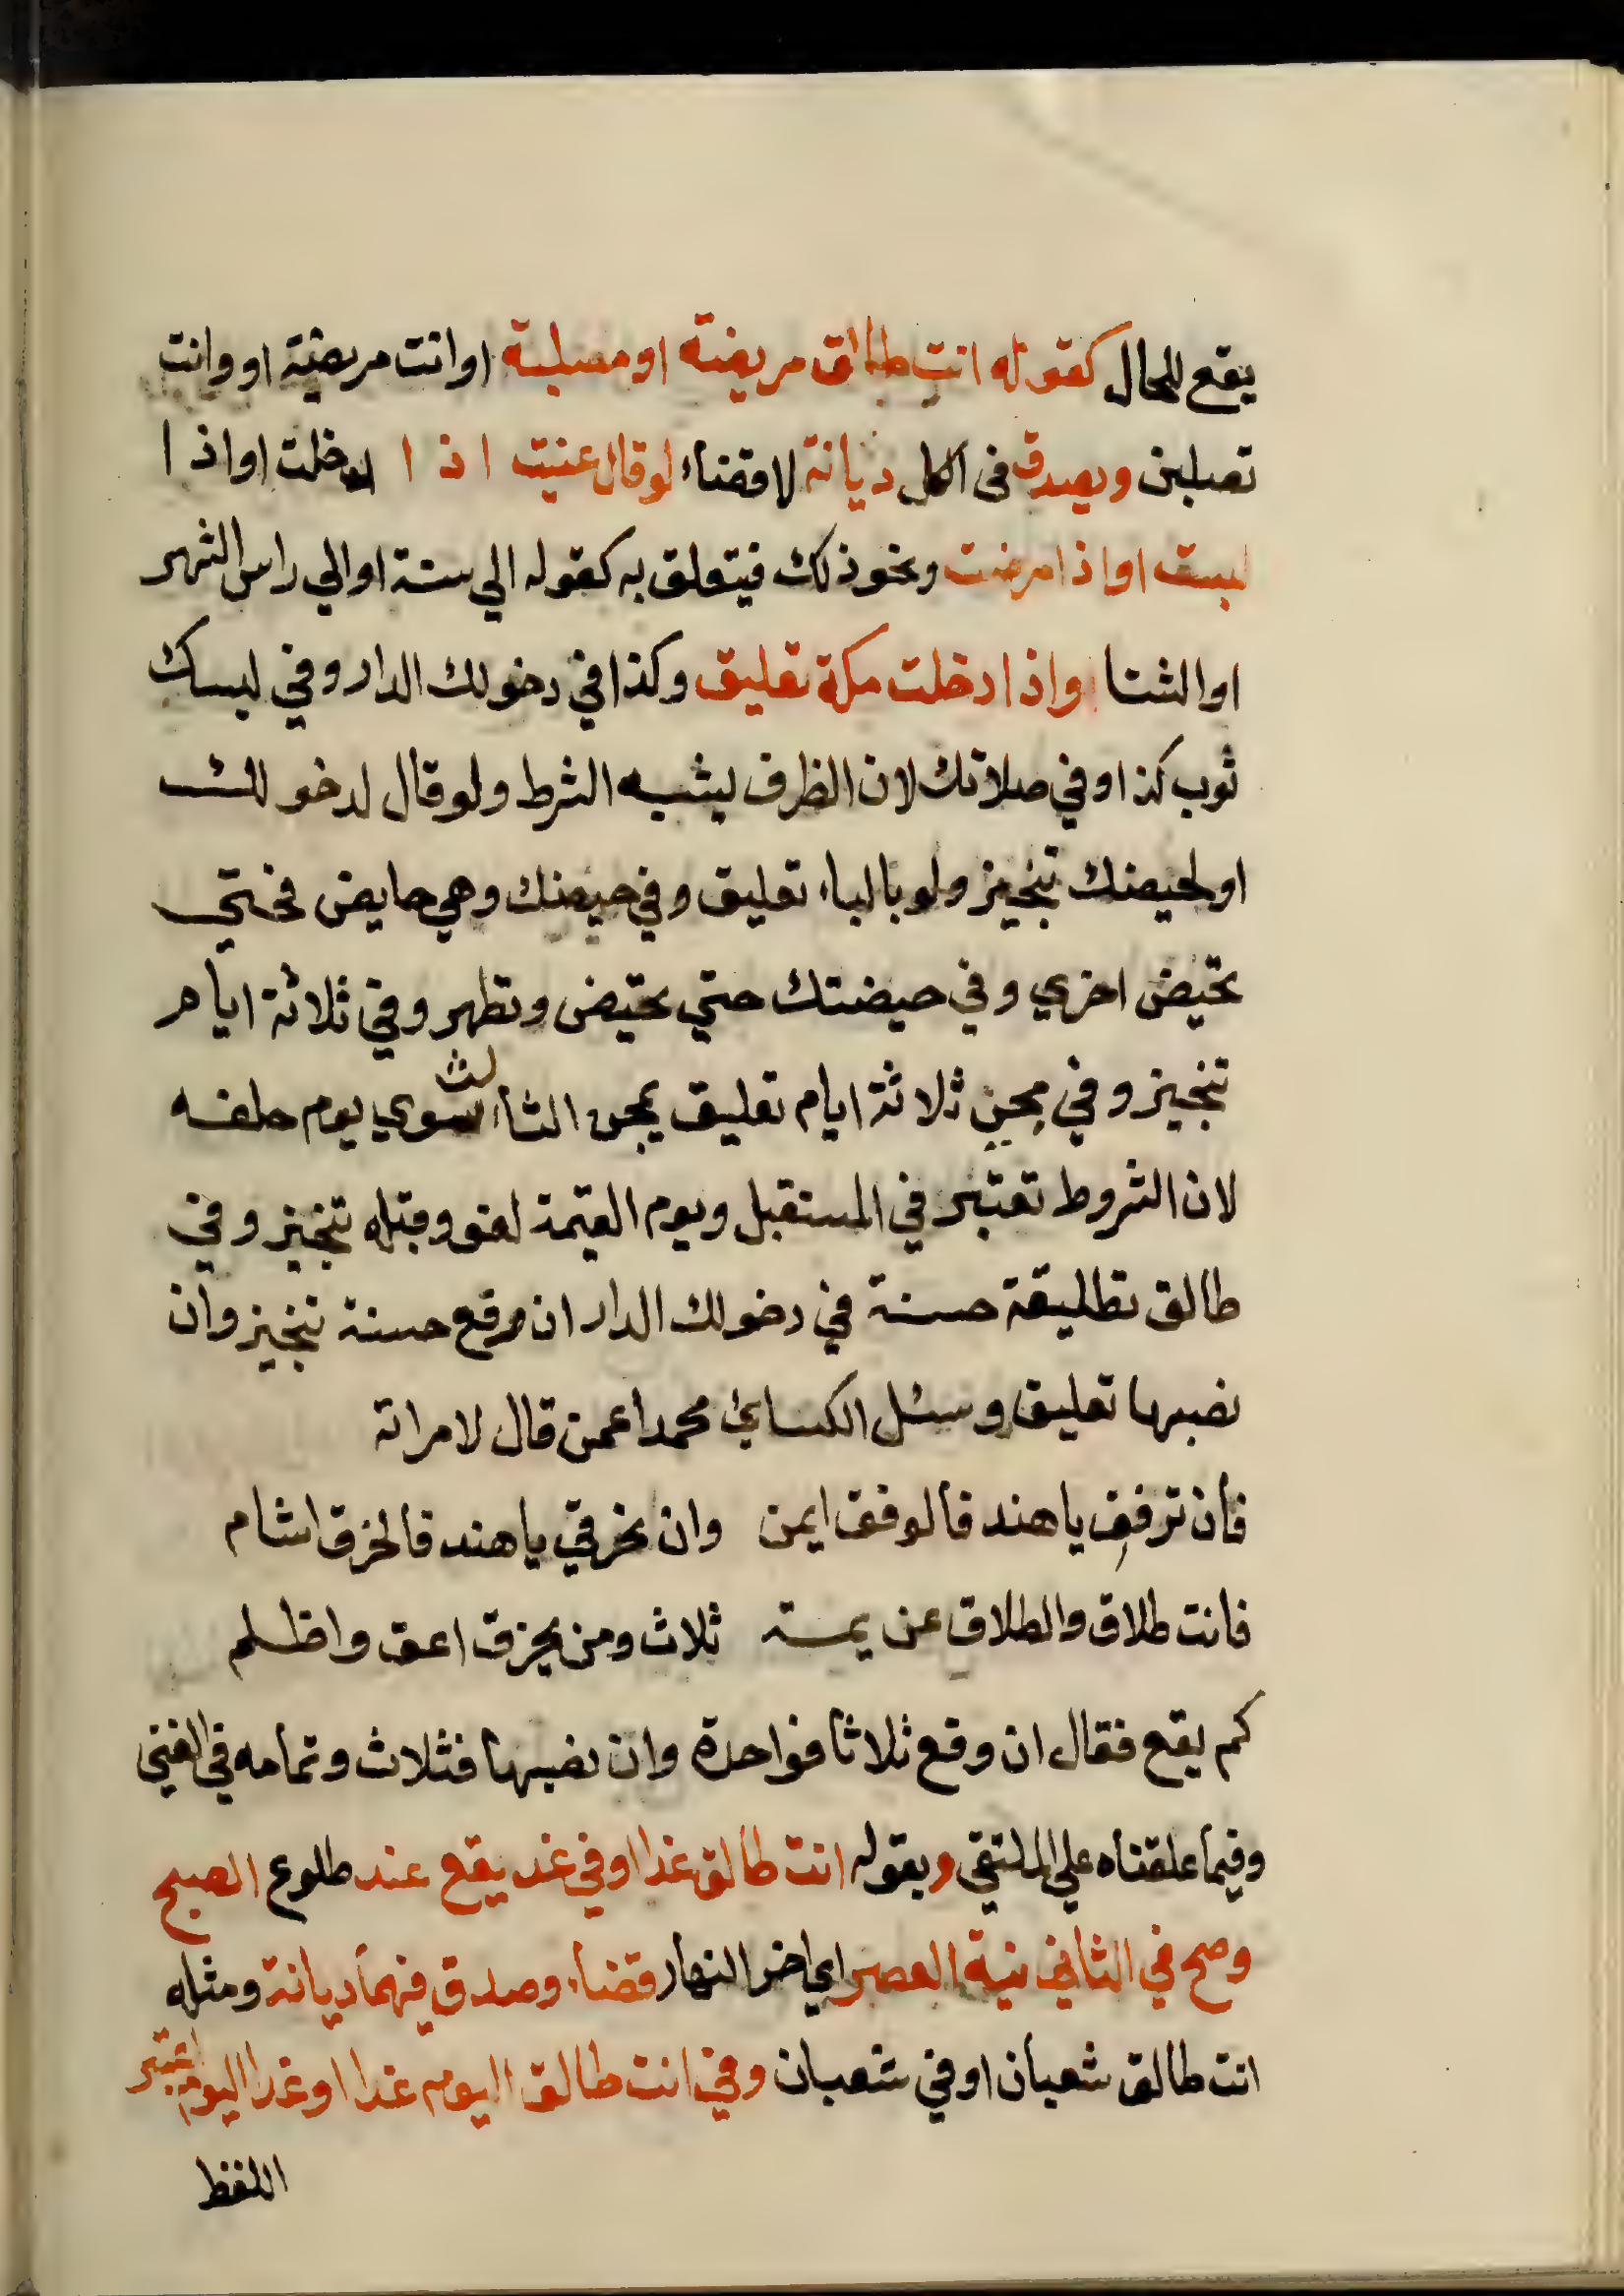 يقع للحال كقوله انت طالق مريضة او مصلية او انت مريضة او وانت
تصلين ويصدق في الكل ديانة لا قضاء لو قال عنيت اذا ا دخلت او اذا
لبست او اذا مرضت ونحو ذلك فيتعلق به كقوله الي سنة او الي راس الشهر
او الشتا واذا دخلت مكة تعليق وكذا في دخولك الدار وفي لبسك
ثوب كذا او في صلاتك لان الظرف يشبه الشرط ولو قال لدخولك
او لحيضك تنجيز ولو بالباء تعليق وفي حيضك وهي حايض فحتي
تحيض اخري وفي حيضتك حتي تحيض وتطهر وفي ثلاثة ايام
تنجيز وفي مجئ ثلاثة ايام تعليق بمجئ الثالث سوي يوم حلفه
لان الشروط تعتبر في المستقبل ويوم القيمة لغو وقبله تنجيز وفي
طالق تطليقة حسنة في دخولك الدار ان رفع حسنة تنجيز وان
نصبها تعليق وسئل الكسائي محمدا عمن قال لامراته
فان ترفقي يا هند فالرفق ايمن وان تخرقي يا هند فالخرق اشام
فانت طلاق والطلاق عزيمة ثلاث ومن يخرق اعق واظلم
كم يقع فقال ان رفع ثلاثا فواحدة وان نصبها فثلاث وتمامه في المغني
وفيما علقناه علي الملتقي وبقوله انت طالق غدا او في غد يقع عند طلوع الصبح
وصح في الثاني نية العصر اي اخر النهار قضاء وصدق فيهما ديانة ومثله
انت طالق شعبان او في شعبان وفي انت طالق اليوم غدا او غدا اليوم اعتبر
اللفظ